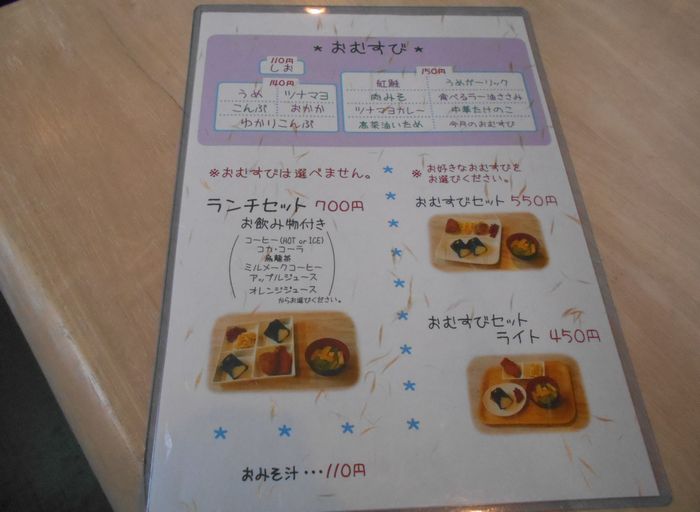 * おむすび *
110円
しお
140円
うめ ツナマヨ
こんぶ おかか
ゆかりこんぶ
150円
紅鮭 うめガーリック
肉みそ 食べるラー油ささみ
ツナマヨカレー 中華たけのこ
高菜油いため 今月のおむすび
※おむすびは選べません。
ランチセット 700円
お飲み物付き
コーヒー(HOT or ICE)
コカ・コーラ
烏龍茶
ミルメークコーヒー
アップルジュース
オレンジジュース
からお選びください。
※ お好きなおむすびを
お選びください。
おむすびセット 550円
おむすびセット
ライト 450円
おみそ汁・・・110円